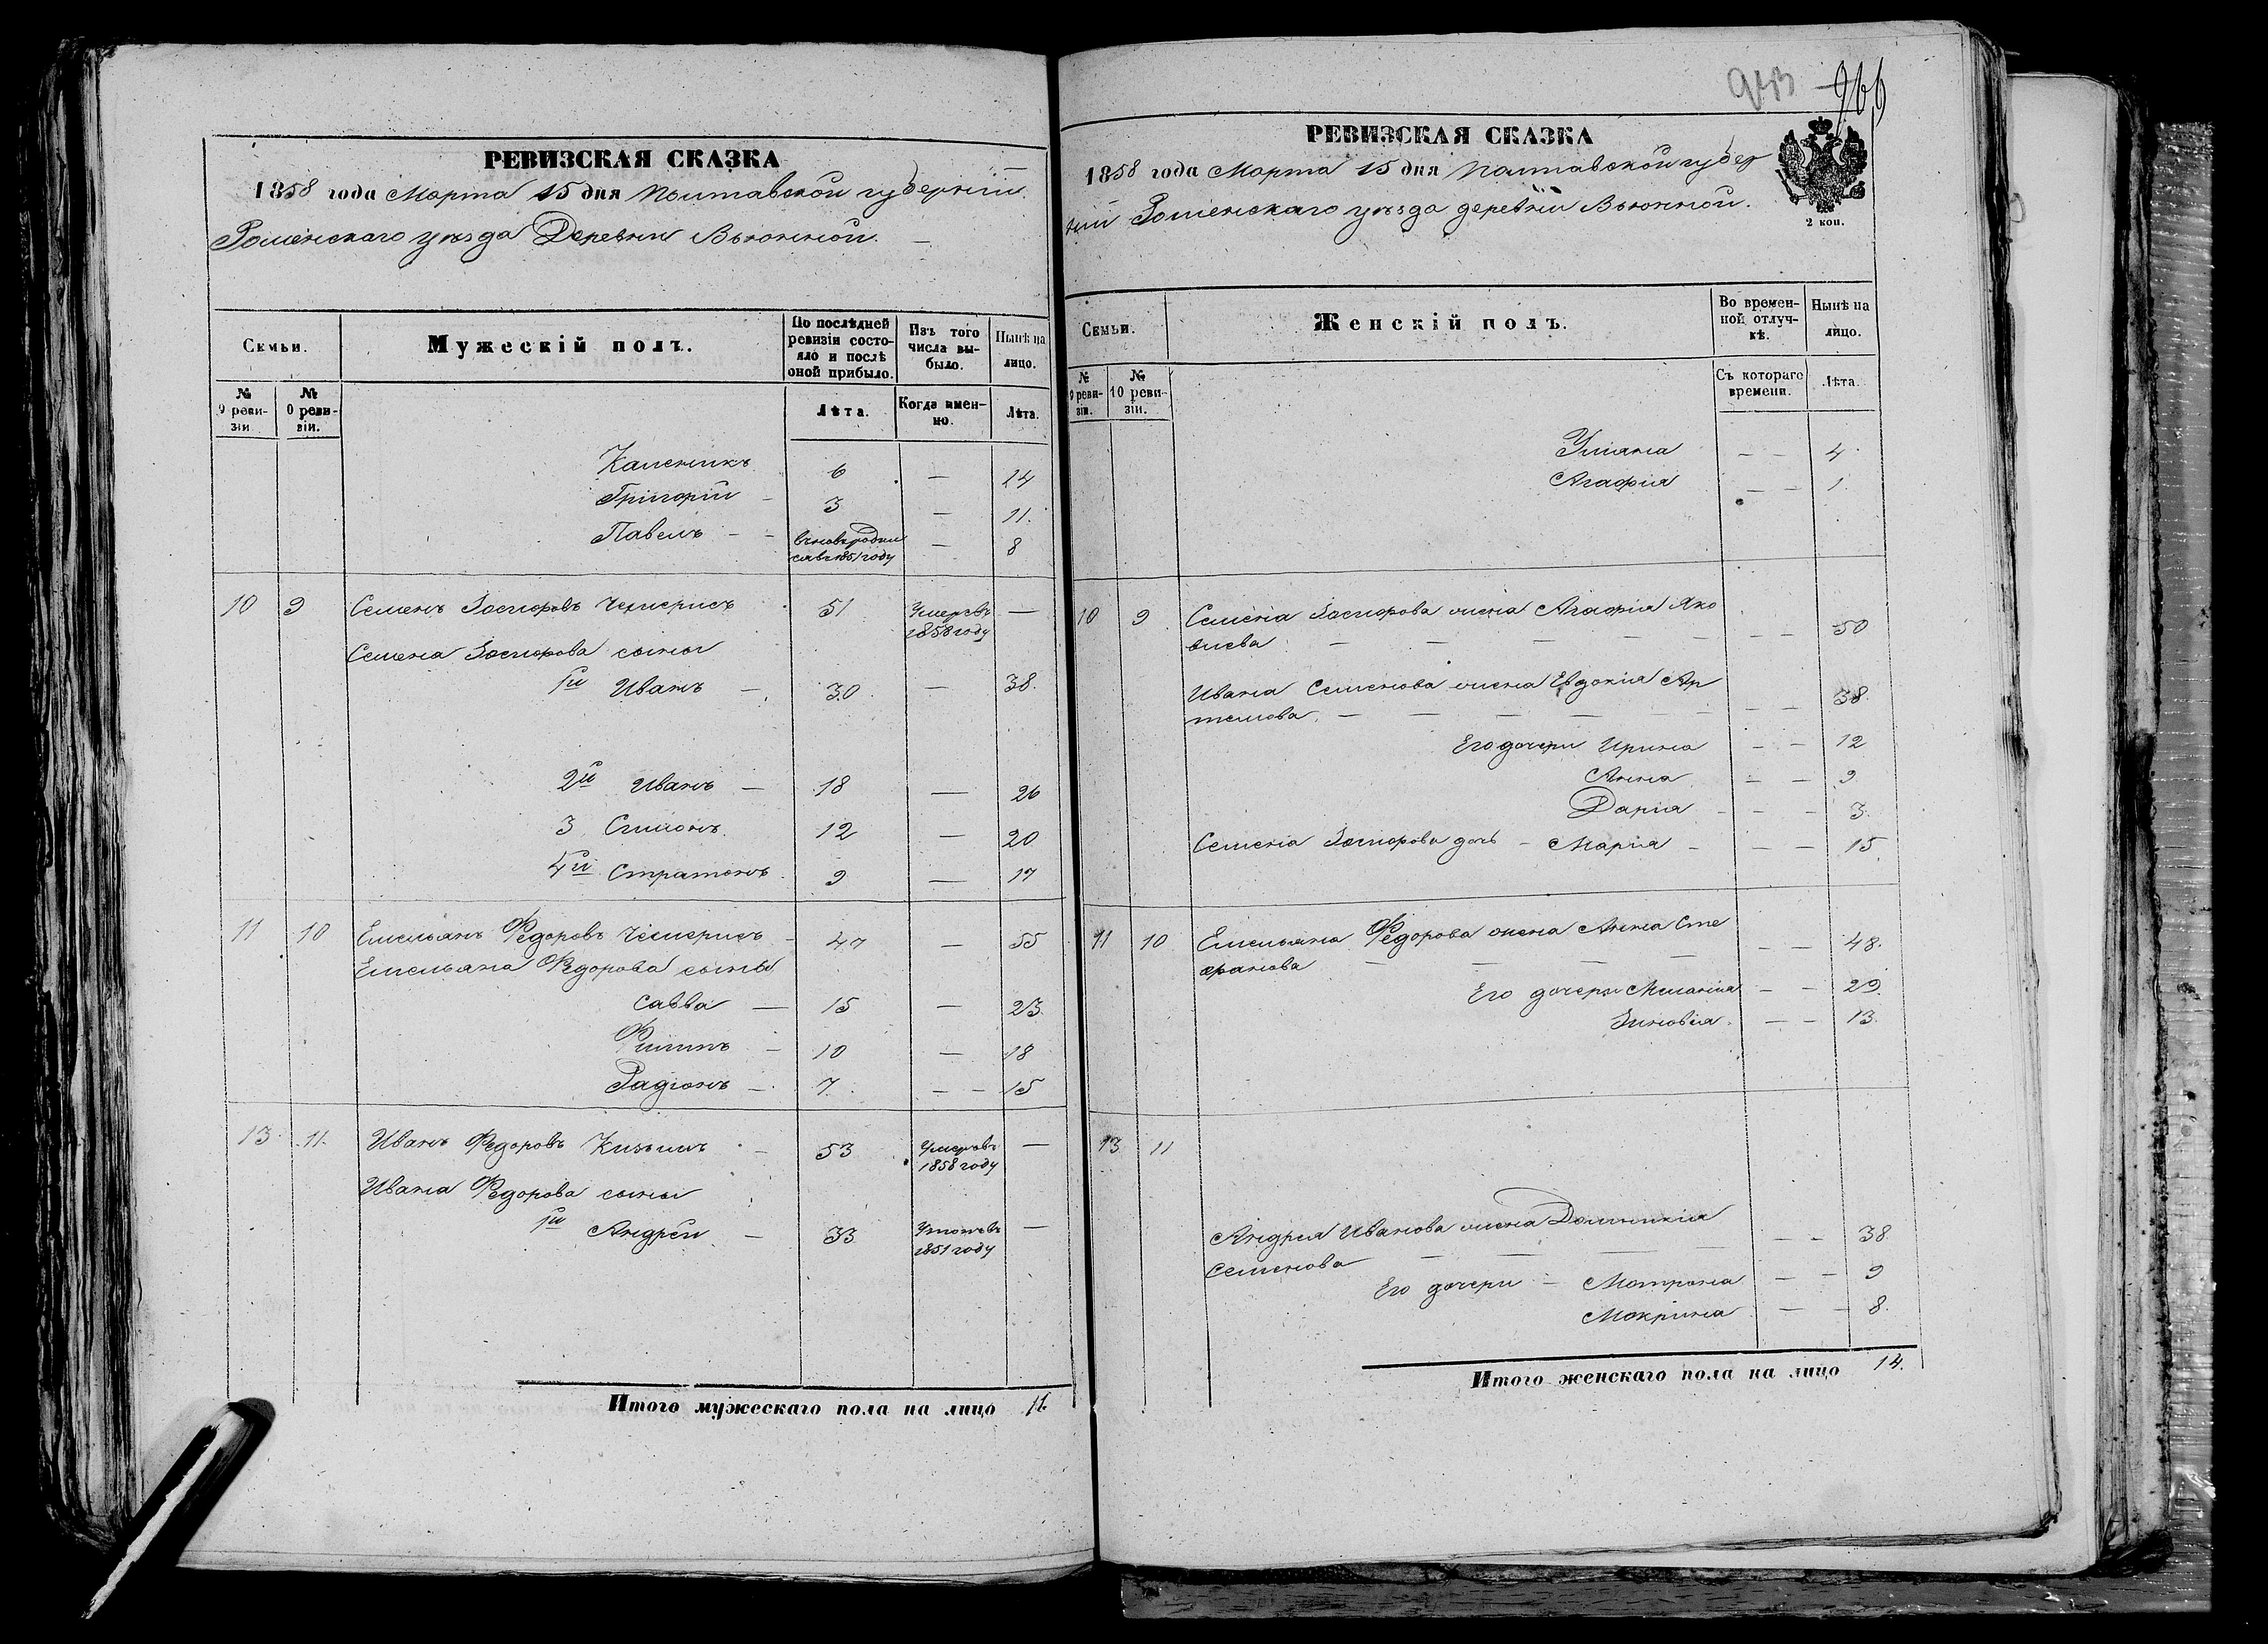 РЕВИЗСКАЯ СКАЗКА
1858 года Марта 15 дня Полтавской губернiи
Роменскаго уѣзда Деревни Вьюнной. —
Семьи.
Мужескiй полъ.
По послѣдней ревизiи состояло и послѣ оной прибыло.
Изъ того числа выбыло.
Нынѣ на лицо.
№ 9 ревизiи
№ 0 ревизiи.
Лѣта.
Когда именно.
Лѣта.
Каленикъ 6 — 14
Григорiй — 3 — 11.
Павелъ — — вновь родился въ 1851 году — 8
10 9 Семенъ Чемерисъ 51 Умеръ въ 1858 году —
Семена сыны
1й Иванъ — 30 — 38.
2й Иванъ — 18 — 26
3 Симонъ 12 — 20
4й Стратонъ 9 — 17
11 10 Емельянъ Федоровъ Чемерисъ — 47 — 55
Емельяна Федорова сыны
Савва — 15 — 23
Филипъ — 10 — 18
Радiонъ — 7 — — 15
13 11. Иванъ Федоровъ — 53 Умеръ въ 1858 году —
Ивана Федорова сыны
1й Андрей — 33 1851 году —
Итого мужескаго пола на лицо 11.
943 — 966
РЕВИЗСКАЯ СКАЗКА
1858 года Марта 15 дня Полтавской губер
нiи Роменскаго уѣзда деревнi Вьюнной.
2 коп.
Семьи.
Женскiй полъ.
Во временной отлучкѣ.
Нынѣ на лицо.
№ 9 ревизiи.
№ 10 ревизiи.
Съ котораго времени.
Лѣта.
Улiяна — — 4
Агафiя — — 1
10 9 Семена жена Агафiя Яко
влева — — — — — — — 50
Ивана Семенова жена Евдокiя Ар
темова. — — — — — — — 38.
Его дочери Ирина — — 12
Анна — — 9
Дарiя — — — 3
Семена дочь — Марiя — — — 15
11 10 Емельяна Федорова жена Анна Сте
фанова — — — — — — 48.
Его дочери Меланiя — — 29
Зиновiя. — — 13.
13 11
Андрея Иванова жена Домникiя
Семенова — — — — — — 38
Его дочери — Мотрона — — 9
Мокрина — — 8.
Итого женскаго пола на лицо 14.